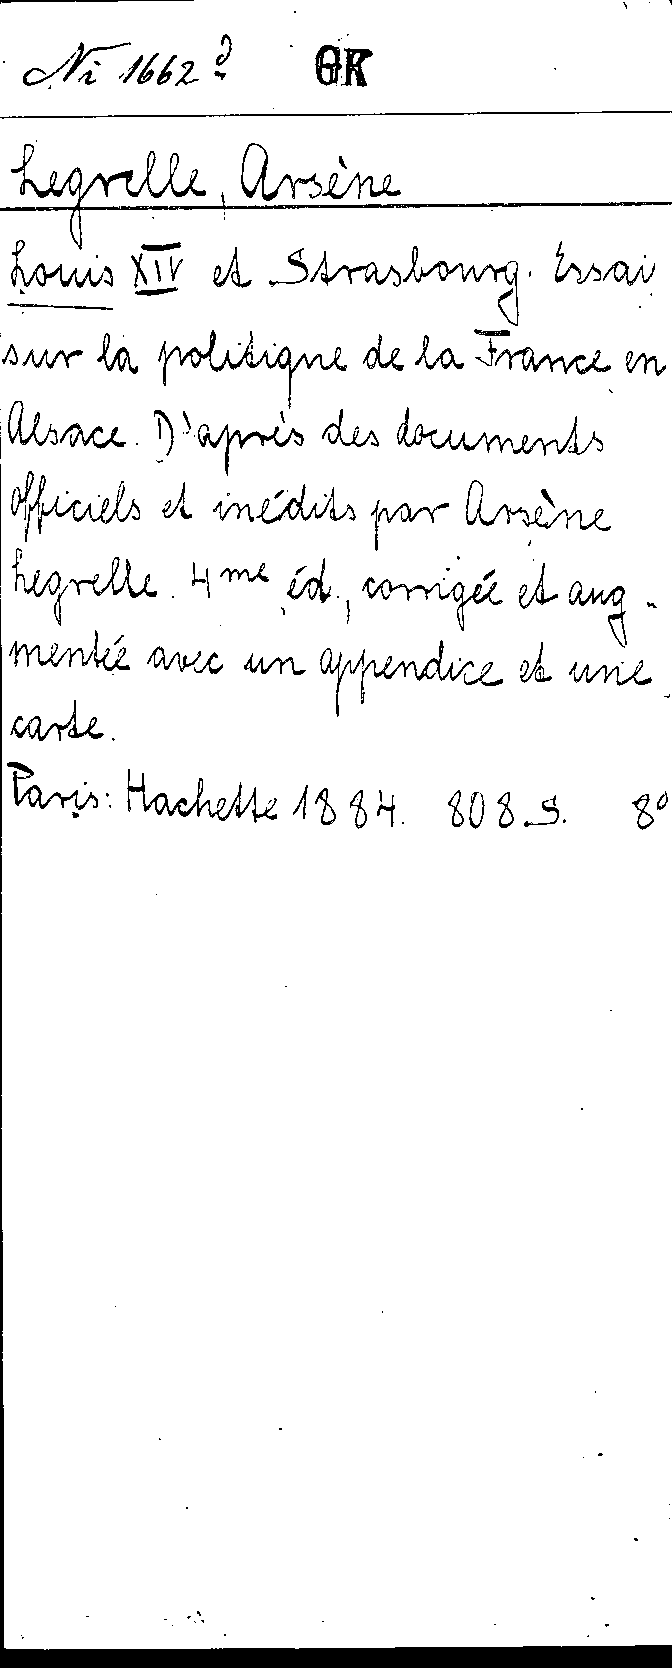 Ni 1662 d GK
Legrelle, Arsène
Louis XIV et Strasbourg. Essai
sur la politique de la France en
Alsace. D'après des documents
officiels et inédits par Arsène
Legrelle. 4me éd., corrigée et aug-
mentée avec un appendice et une
carte.
Paris: Hachette 1884. 808 S. 8°